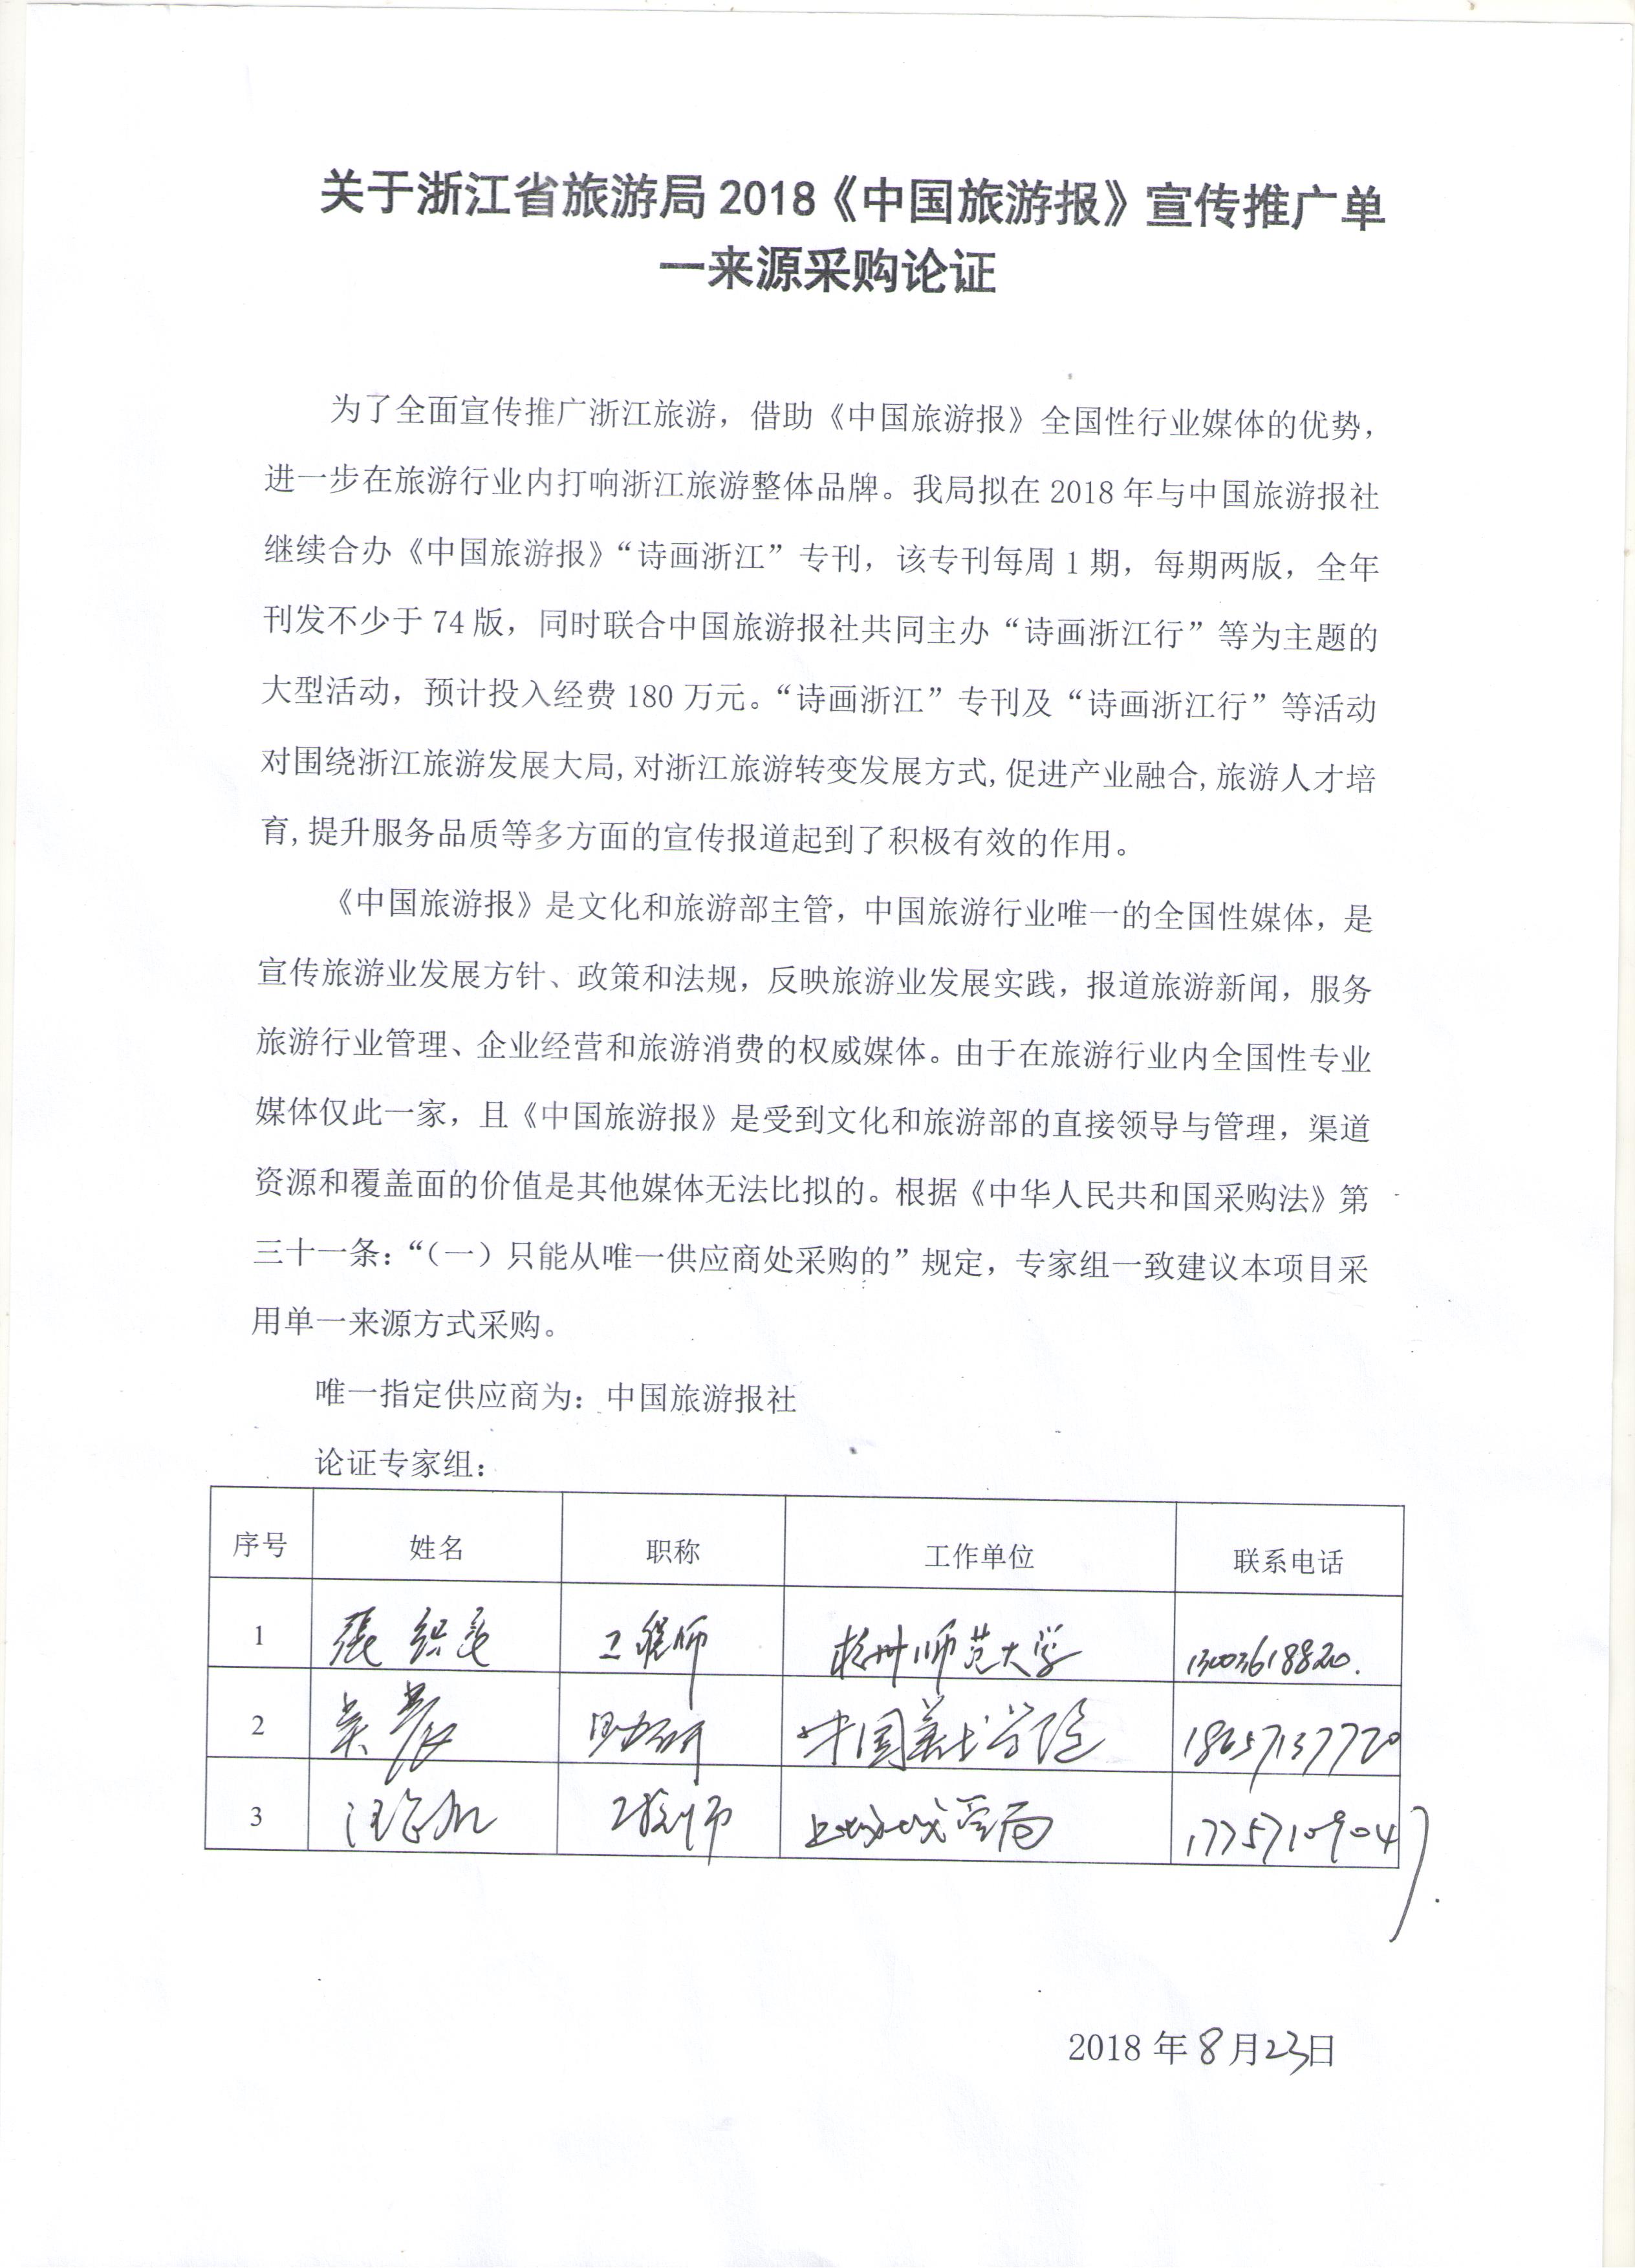 关于浙江省旅游局 2018《中国旅游报》宣传推广单
一来源采购论证
为了全面宣传推广浙江旅游，借助《中国旅游报》全国性行业媒体的优势，
进一步在旅游行业内打响浙江旅游整体品牌。我局拟在 2018 年与中国旅游报社
继续合办《中国旅游报》“诗画浙江”专刊，该专刊每周 1 期，每期两版，全年
刊发不少于 74 版，同时联合中国旅游报社共同主办“诗画浙江行”等为主题的
大型活动，预计投入经费 180 万元。“诗画浙江”专刊及“诗画浙江行”等活动
对围绕浙江旅游发展大局,对浙江旅游转变发展方式,促进产业融合,旅游人才培
育,提升服务品质等多方面的宣传报道起到了积极有效的作用。
《中国旅游报》是文化和旅游部主管，中国旅游行业唯一的全国性媒体，是
宣传旅游业发展方针、政策和法规，反映旅游业发展实践，报道旅游新闻，服务
旅游行业管理、企业经营和旅游消费的权威媒体。由于在旅游行业内全国性专业
媒体仅此一家，且《中国旅游报》是受到文化和旅游部的直接领导与管理，渠道
资源和覆盖面的价值是其他媒体无法比拟的。根据《中华人民共和国采购法》第
三十一条：“（一）只能从唯一供应商处采购的”规定，专家组一致建议本项目采
用单一来源方式采购。
唯一指定供应商为：中国旅游报社
论证专家组：
序号 姓名 职称 工作单位 联系电话
1 張 工程师 杭州师范大学 13003618820.
2 吴 助研 中国美术学院 18657137720
3 汪 工程师
2018 年 8 月 23 日